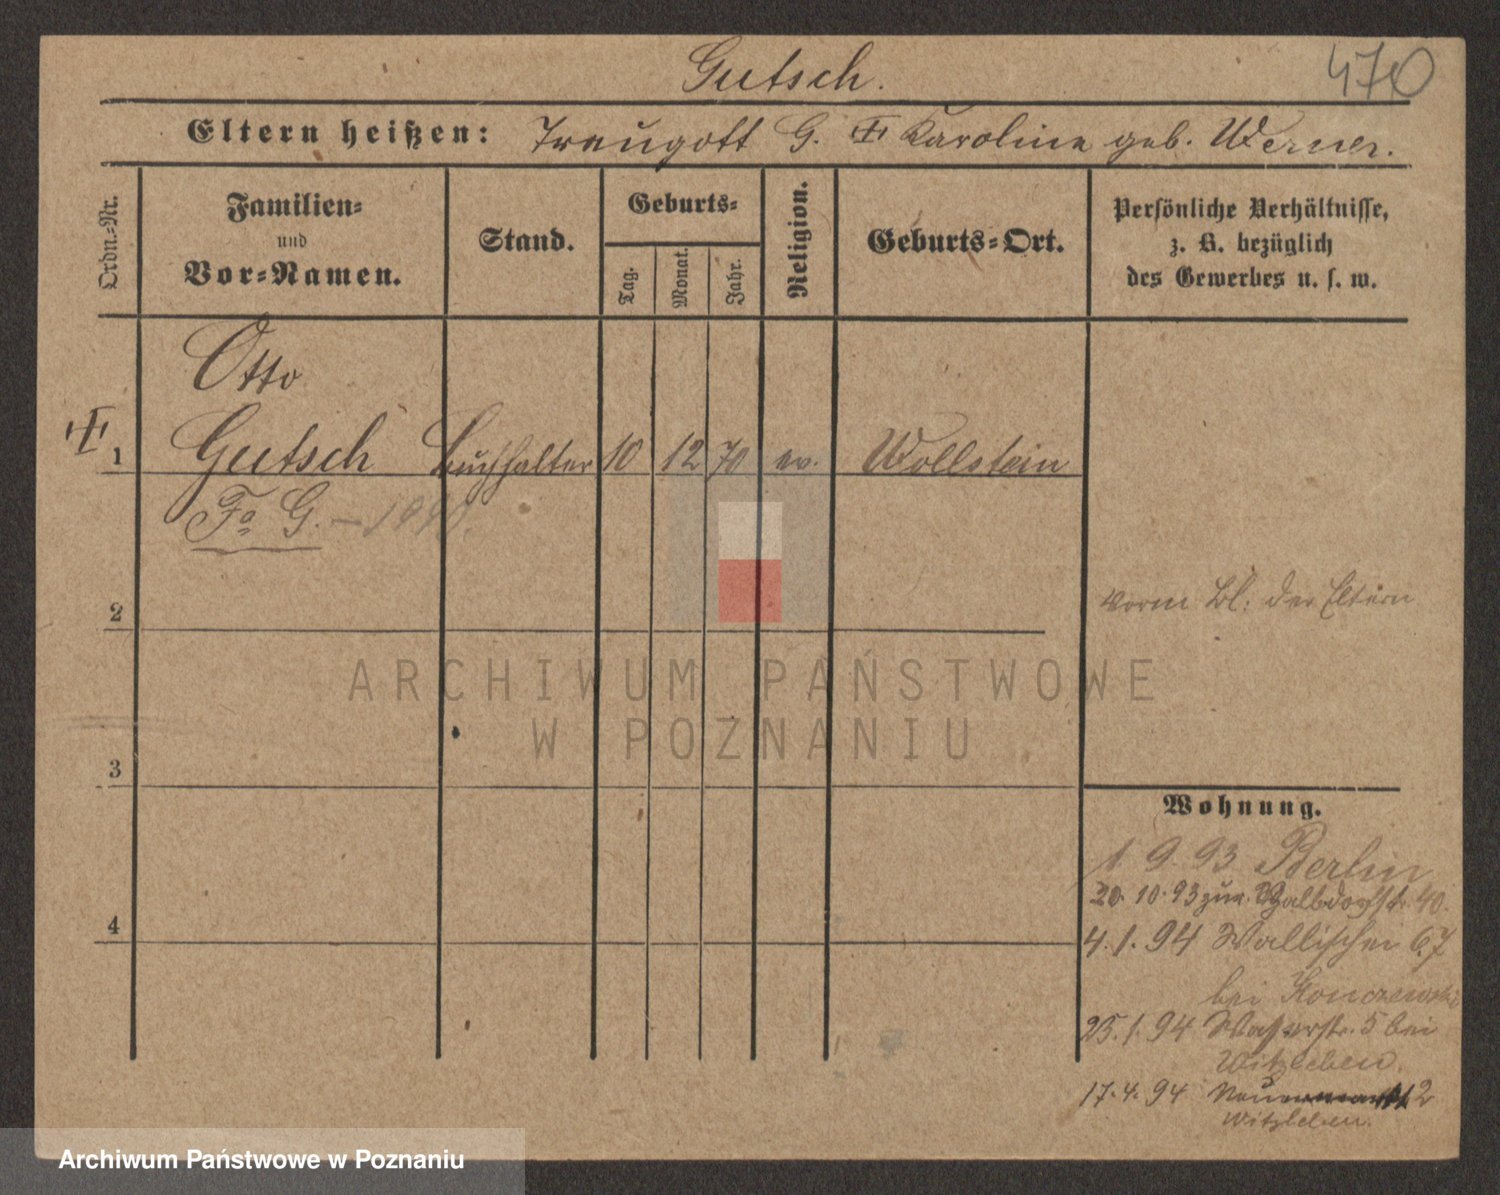 Gutsch.
470
Eltern heißen: Traugott G. Karoline geb. Werner.
Ordn.-Nr.
Familien-
und
Vor-Namen.
Stand.
Geburts-
Tag.
Monat.
Jahr.
Religion.
Geburts-Ort.
Persönliche Verhältnisse,
z. B. bezüglich
des Gewerbes u. s. w.
Otto
1 Gutsch Buchhalter 10 12 70 ev. Wollstein
Fa G.
2
vorm Bl: der Eltern
ARCHIWUM PAŃSTWOWE
W POZNANIU
3
Wohnung.
1 9. 93 Berlin
20. 10. 93 zur. Halbdorfstr. 40.
4
4. 1. 94 Wallischei 67
bei Konczewski
25. 1. 94 Wasserstr. 5 bei
Witzleben.
17. 4. 94 2
Witzleben.
Archiwum Państwowe w Poznaniu